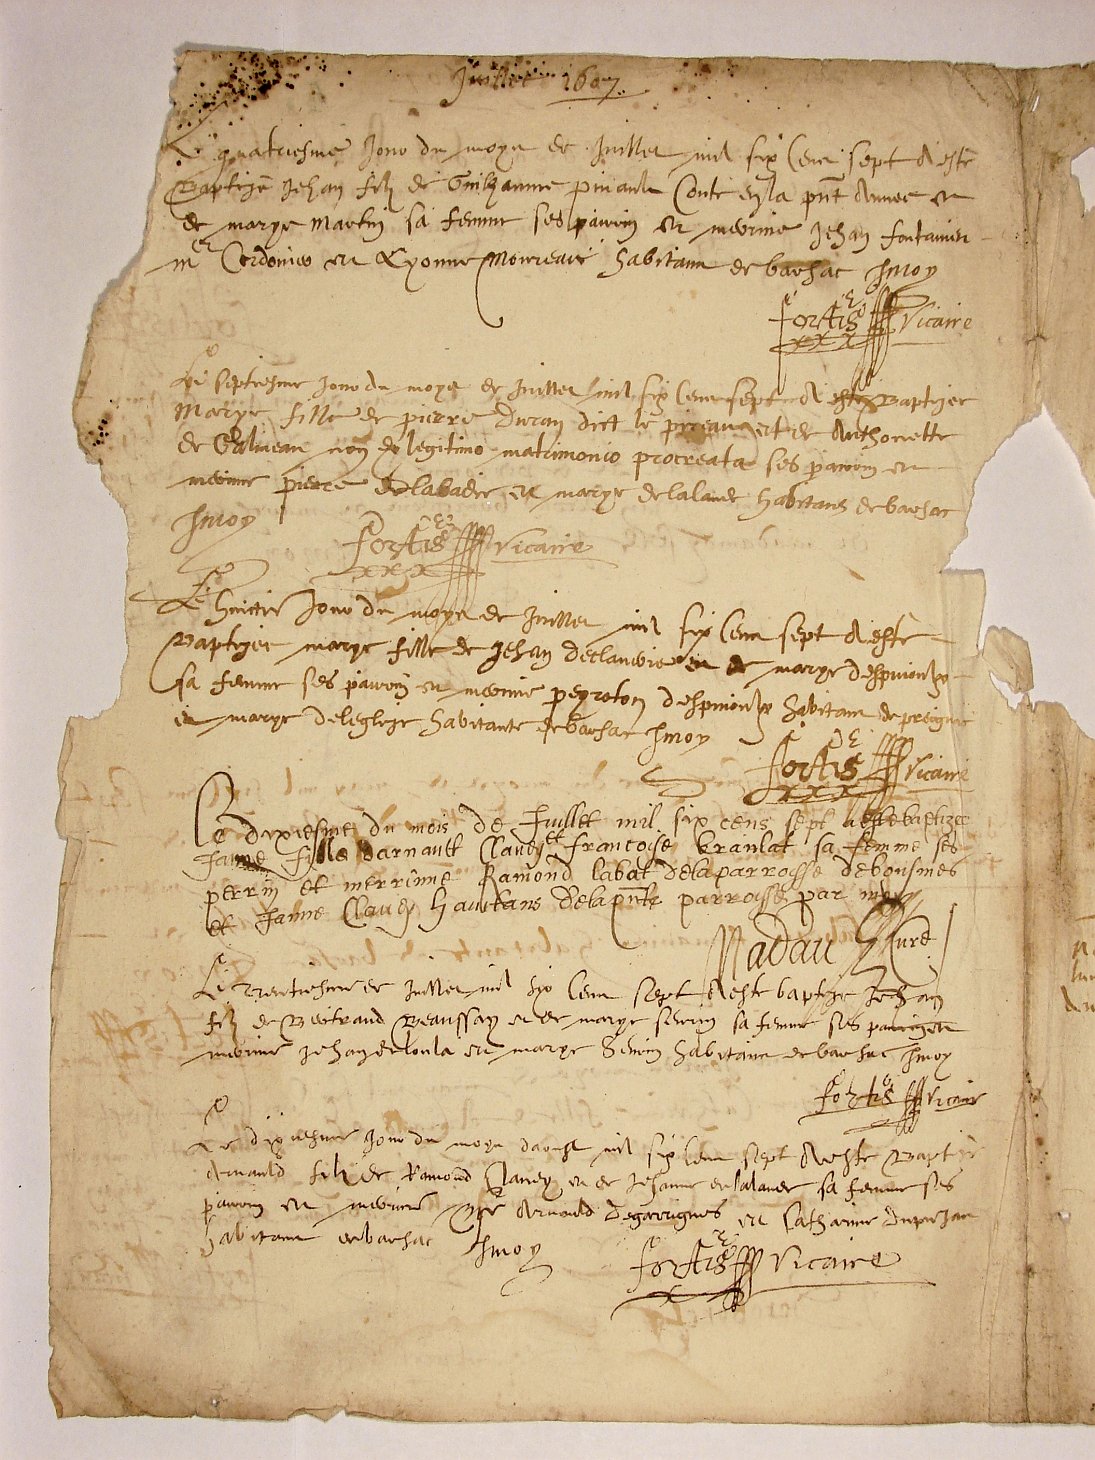 Juillet 1607
Le quatriesme Jour du moys de Juillet mil six Cens sept A esté
Baptizé Jehan filz de Guilhaume pinault Conte en la pnt Annee et
de marye Martin sa femme ses parrin et merrine Jehan fontainier
me Cordonier et Lyonne Moureau habitans de barsac p moy
fortis Vicaire
Le septiesme Jour du moys de Juillet mil six Cens sept A esté Baptizee
Marye fille de pierre Duran dict le et de Anthonette
de non de legitimo matrimonio procreata ses parrin et
merrine pierre Delabadie et marye delalande habitans de barsac
p moy
fortis Vicaire
Le huictie Jour du moys de Juillet mil six Cens sept A esté
Baptizee marye fille de Jehan et de marye
sa femme ses parrin et merrine peyroton habitant de preignac
et marye deleglize habitante de barsac p moy
fortis Vicaire
Le dixiesme du mois de Juillet mil six cens sept a esté baptizee
Janne fille darnault Clavey et francoise brailat sa femme ses
perrin et merrinne Ramond labat de la parrosse de bonsmes
et Janne Clavey hauitans de la pnte parrosse par moy
Nadau Curé
Le de Juillet mil six Cens sept A esté baptizé Jehan
filz de Bertrand Beaussan et de marye serin sa femme ses parrin et
merrine Jehan deloula et marye Serin habitans de barsac p moy
fortis Vicaire
Le dixiesme Jour du moys daoust mil six Cens sept A esté Baptizé
Arnauld filz de Ramond Clavey et de Jehanne delalande sa femme ses
parrin et merrine Arnauld Degarrigues et Catharine
habitans de barsac p moy
fortis Vicaire